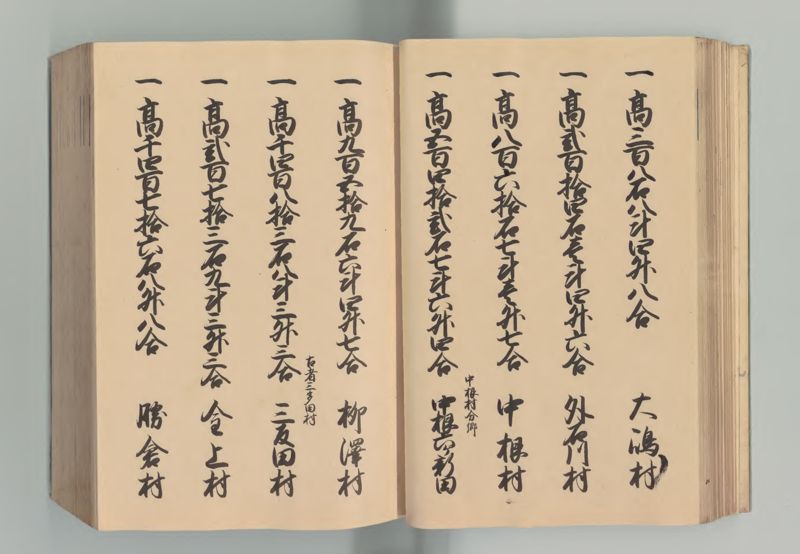 一 高三百八石八斗四升八合 大嶋村
一 高弐百拾四石壱斗四升六合 外石川村
一 高八百六拾石七斗壱升七合 中根村
中根村分郷
一 高五百四拾弐石七斗六升四合 中根六ツ新田
一 高九百五拾九石六斗四升七合 柳澤村
古者三多田村
一 高千四百八拾三石八斗三升三合 三反田村
一 高弐百七拾三石九斗三升三合 金上村
一 高千四百七拾六石八升八合 勝倉村